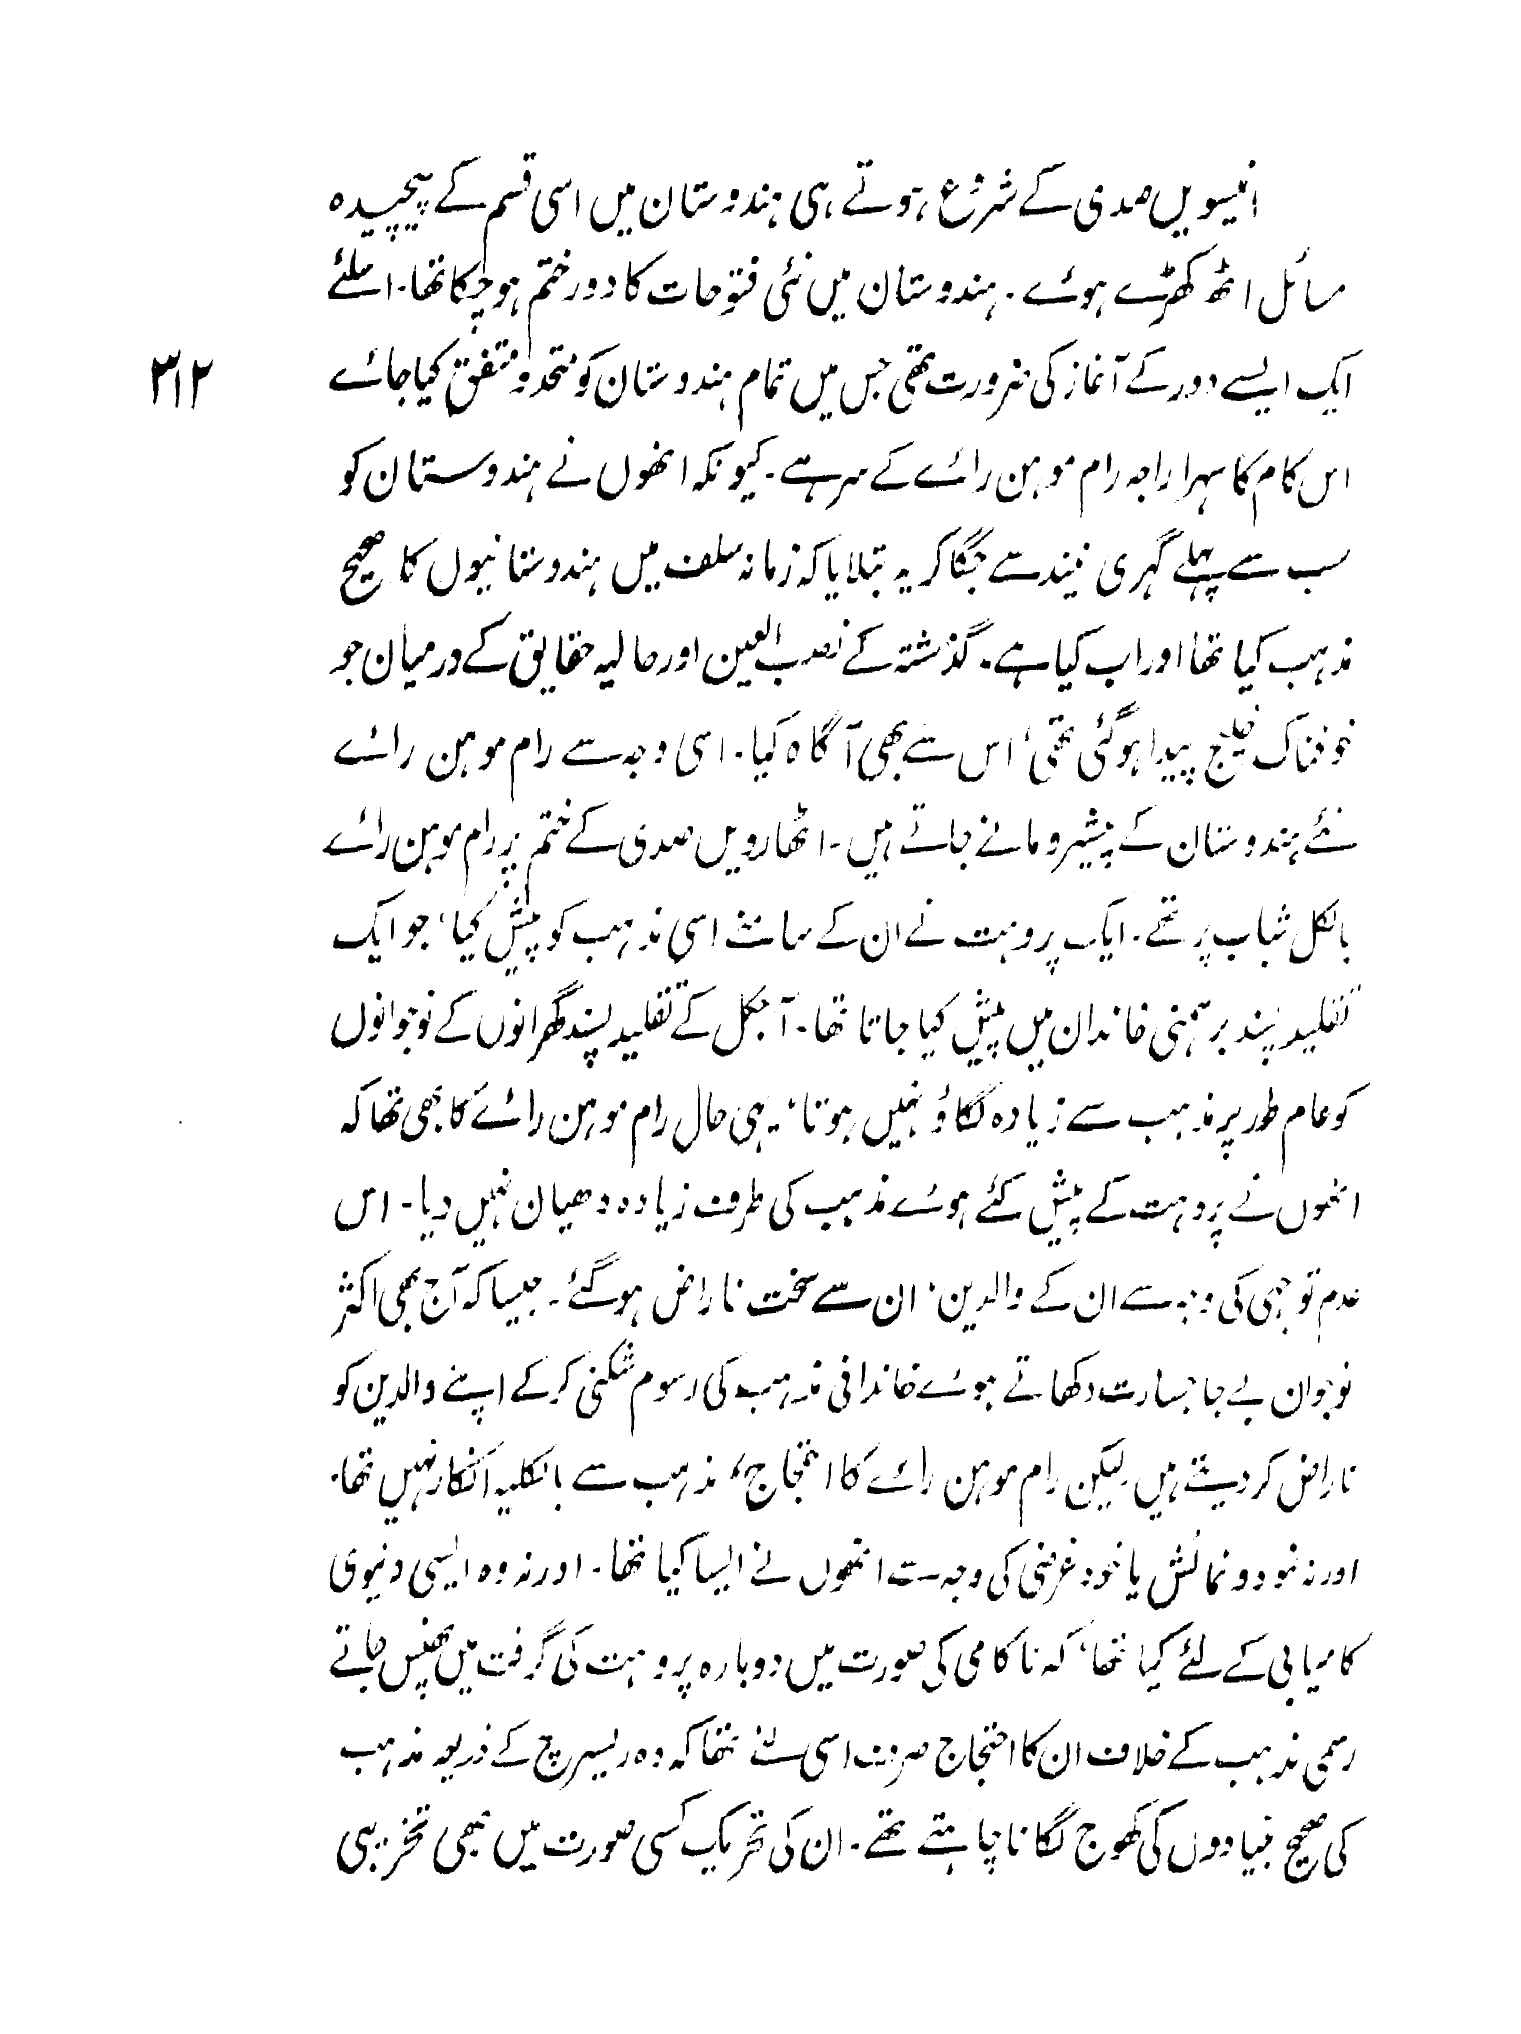 انیسویں صدی کے شروع ہوتے ہی ہندوستان میں اسی قسم کے پیچیدہ
مسائل اٹھ کھڑے ہوئے۔ ہندوستان میں نئی فتوحات کا دور ختم ہو چکا تھا۔ اسلئے
ایک ایسے دور کے آغاز کی ضرورت تھی جس میں تمام ہندوستان کو متحد و متفق کیا جائے
۳۱۲
اس کام کا سہرا راجہ رام موہن رائے کے سر ہے۔ کیونکہ انھوں نے ہندوستان کو
سب سے پہلے گہری نیند سے جگا کر یہ بتلایا کہ زمانہ سلف میں ہندوستانیوں کا صحیح
مذہب کیا تھا اور اب کیا ہے۔ گذشتہ کے نصب العین اور حالیہ حقایق کے درمیان جو
خوفناک خلیج پیدا ہو گئی تھی، اس سے بھی آگاہ کیا۔ اسی وجہ سے رام موہن رائے
نئے ہندوستان کے پیشرو مانے جاتے ہیں۔ اٹھارویں صدی کے ختم پر رام موہن رائے
بالکل شباب پر تھے۔ ایک پروہت نے ان کے سامنے اسی مذہب کو پیش کیا، جو ایک
تقلید پسند برہمنی خاندان میں پیش کیا جاتا تھا۔ آجکل کے تقلید پسند گھرانوں کے نوجوانوں
کو عام طور پر مذہب سے زیادہ لگاؤ نہیں ہوتا، یہی حال رام موہن رائے کا بھی تھا کہ
انھوں نے پروہت کے پیش کئے ہوئے مذہب کی طرف زیادہ دھیان نہیں دیا۔ اس
عدم توجہی کی وجہ سے ان کے والدین، ان سے سخت ناراض ہو گئے۔ جیسا کہ آج بھی اکثر
نوجوان بے جا جسارت دکھاتے ہوئے خاندانی مذہب کی رسوم شکنی کر کے اپنے والدین کو
ناراض کر دیتے ہیں۔ لیکن رام موہن رائے کا احتجاج، مذہب سے بالکلیہ انکار نہیں تھا۔
اور نہ نمود و نمائش یا خود غرضی کی وجہ سے انھوں نے ایسا کیا تھا۔ اور نہ وہ ایسی دنیوی
کامیابی کے لئے کیا تھا، کہ ناکامی کی صورت میں دوبارہ پروہت کی گرفت میں پھنس جاتے
رسمی مذہب کے خلاف ان کا احتجاج صرف اسی لئے تھا کہ وہ ریسرچ کے ذریعہ مذہب
کی صحیح بنیادوں کی کھوج لگانا چاہتے تھے۔ ان کی تحریک کسی صورت میں بھی تخریبی